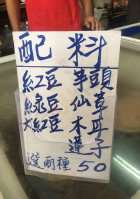 配料
紅豆 芋頭
綠豆 仙草
大紅豆 木耳
蓮子
選兩種 50